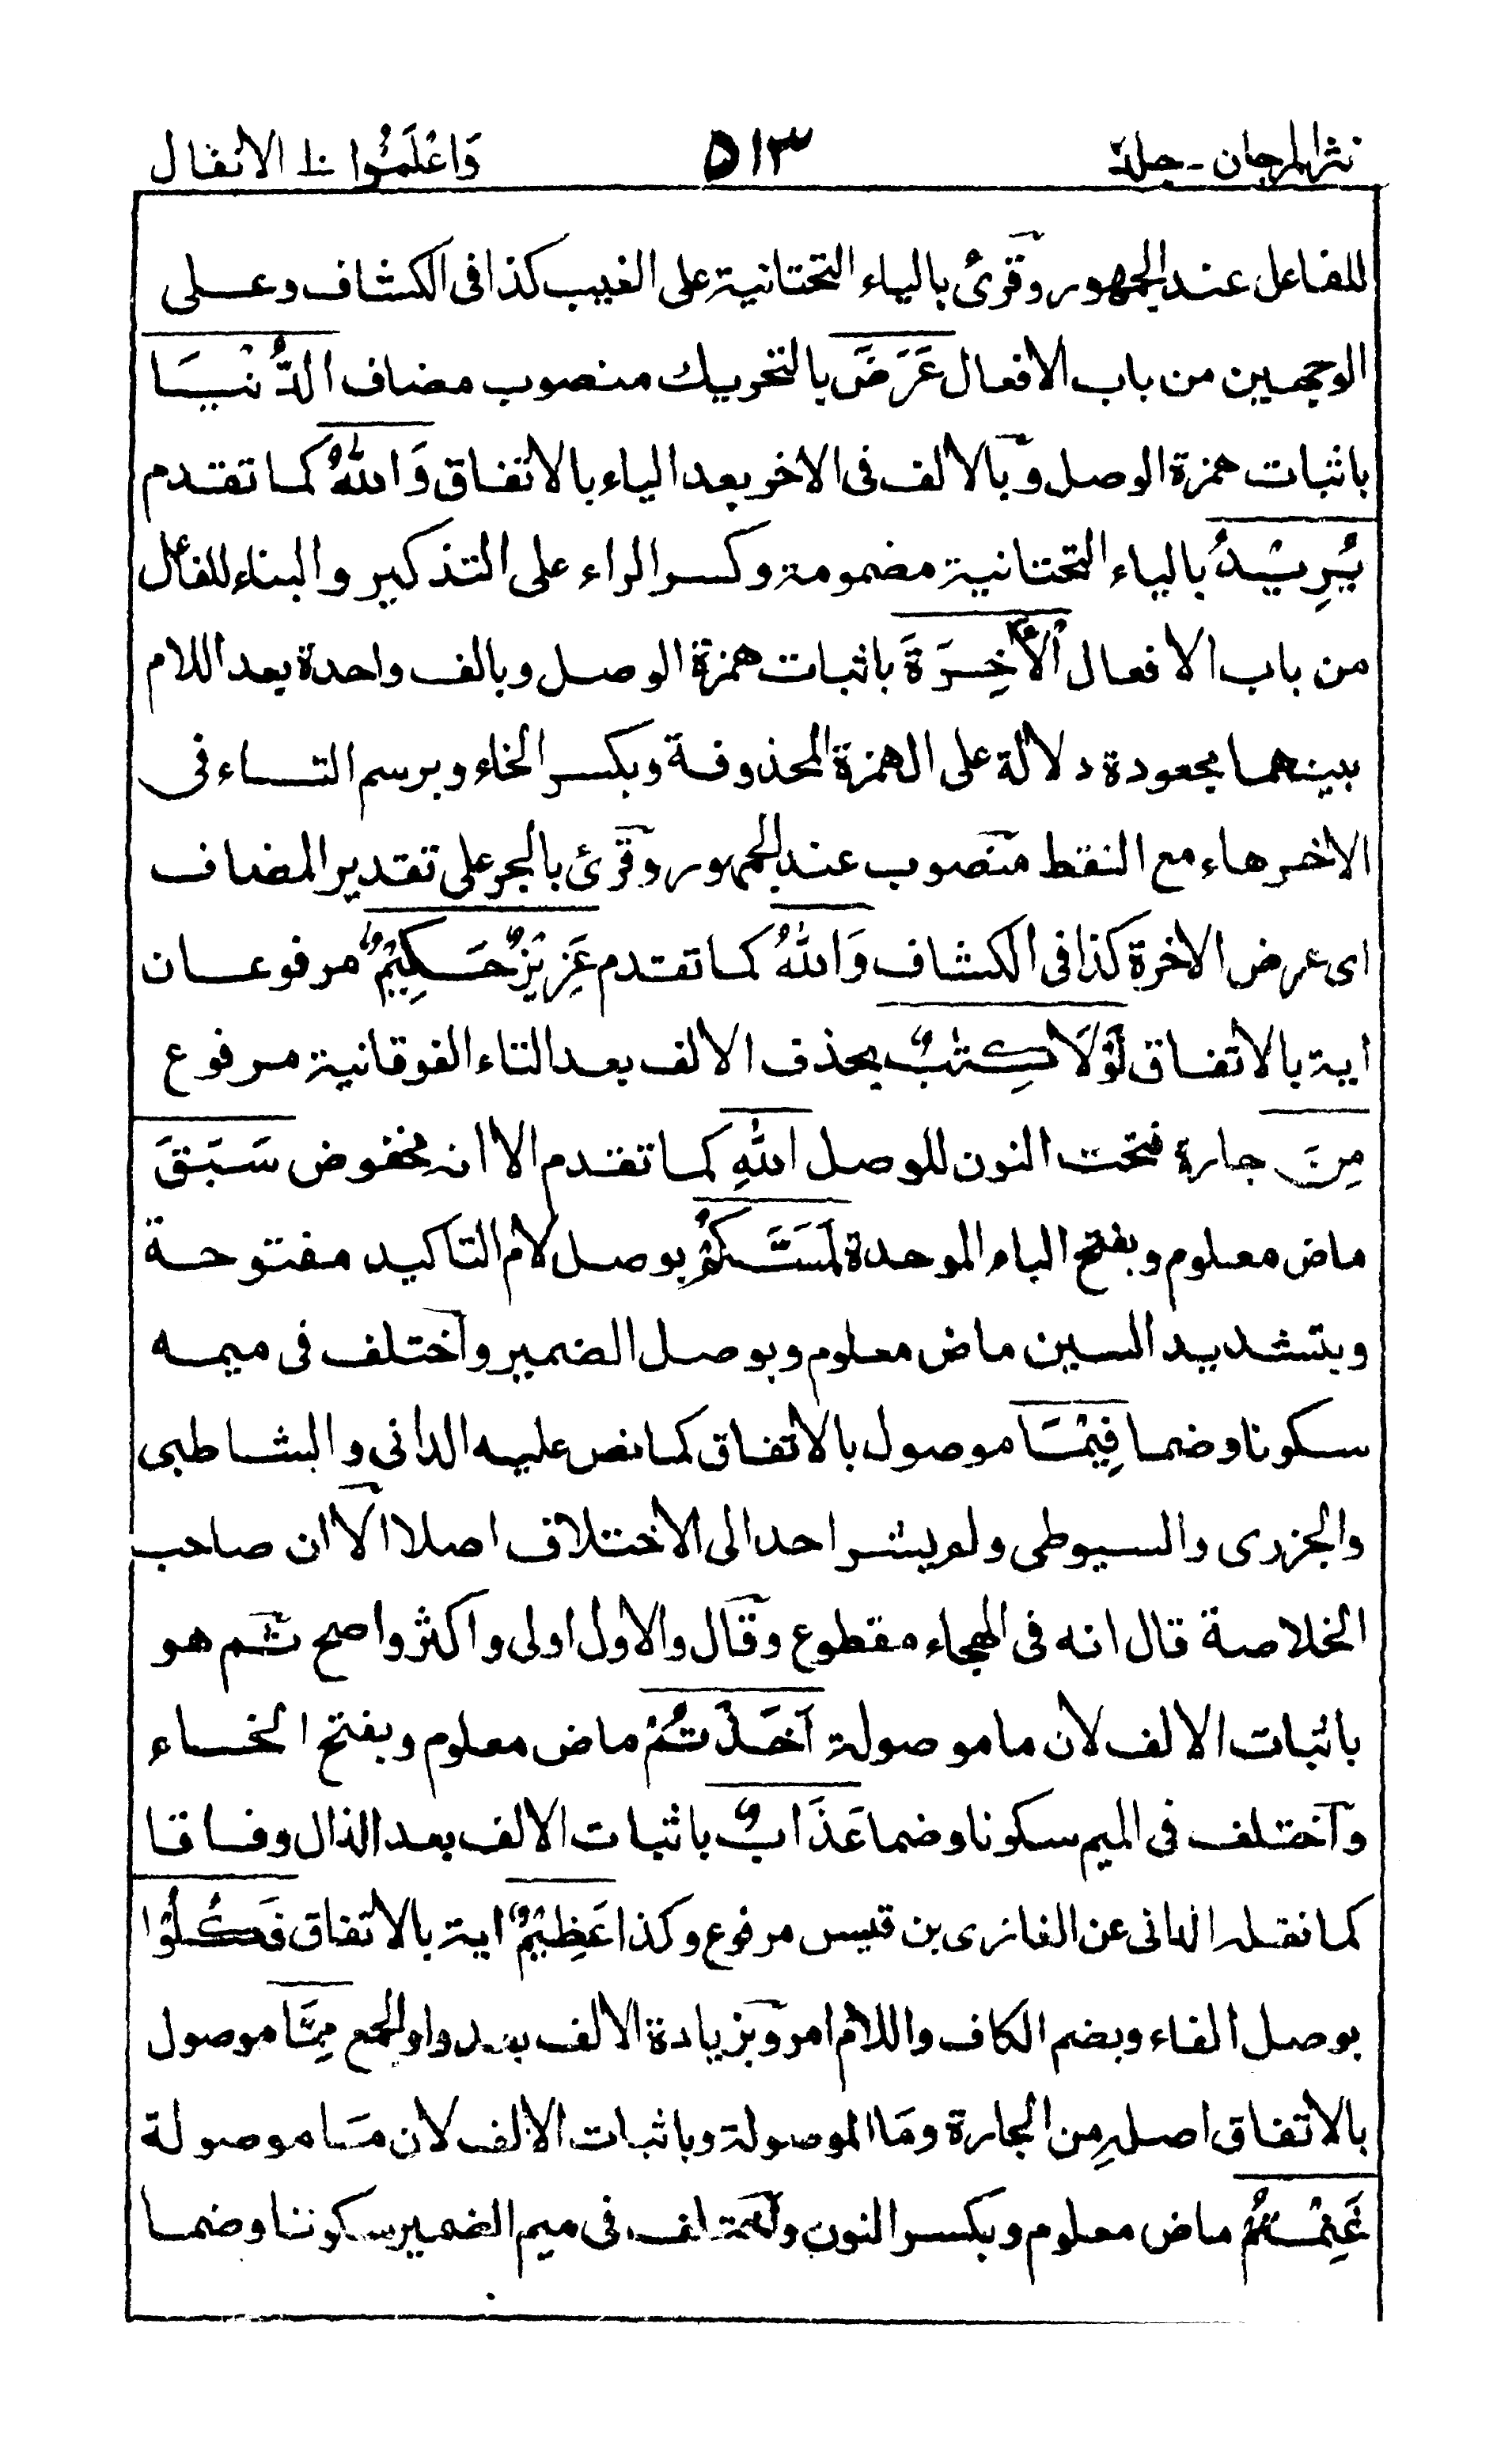 نثر المرجان - جلد ٥١٣ وَاعْلَمُوْا ١٠ الانفال
للفاعل عند الجمهور وقرئ بالياء التحتانية على الغيب كذا فى الكشاف وعلى
الوجهين من باب الافعال عَرَضَ بالتحريك منصوب مضاف الدُّنْيَا
باثبات همزة الوصل وبالالف فى الاخر بعد الياء بالاتفاق وَاللّٰهُ كما تقدم
يُرِيْدُ بالياء التحتانية مضمومة وكسر الراء على التذكير والبناء للفاعل
من باب الافعال الْاٰخِرَةَ باثبات همزة الوصل وبالف واحدة بعد اللام
بينهما مجعودة دلالة على الهمزة المحذوفة وبكسر الخاء وبرسم التاء فى
الاخر هاء مع النقط منصوب عند الجمهور وقرئ بالجر على تقدير المضاف
اى عرض الاخرة كذا فى الكشاف وَاللّٰهُ كما تقدم عَزِيْزٌ حَكِيْمٌ مرفوعان
اية بالاتفاق لَوْلَا كِتٰبٌ بحذف الالف بعد التاء الفوقانية مرفوع
مِنَ جارة فتحت النون للوصل اللّٰهِ كما تقدم الا انه مخفوض سَبَقَ
ماض معلوم وبفتح الباء الموحدة لَمَسَّكُمْ بوصل لام التاكيد مفتوحة
وبتشديد السين ماض معلوم وبوصل الضمير واختلف فى ميمه
سكونا وضما فِيْمَا موصول بالاتفاق كما نص عليه الدانى والشاطبى
والجزرى والسيوطى ولم يشر احد الى الاختلاف اصلا الا ان صاحب
الخلاصة قال انه فى الهجاء مقطوع وقال والاول اولى واكثر واصح ثم هو
باثبات الالف لان ما موصولة اَخَذْتُمْ ماض معلوم وبفتح الخاء
واختلف فى الميم سكونا وضما عَذَابٌ باثبات الالف بعد الذال وفاقا
كما نقله الدانى عن الغازى بن قيس مرفوع وكذا عَظِيْمٌ اية بالاتفاق فَكُلُوْا
بوصل الفاء وبضم الكاف واللام امر وبزيادة الالف بعد واو الجمع مِمَّا موصول
بالاتفاق اصله مِن الجارة ومَا الموصولة وباثبات الالف لان مَا موصولة
غَنِمْتُمْ ماض معلوم وبكسر النون واختلف فى ميم الضمير سكونا وضما